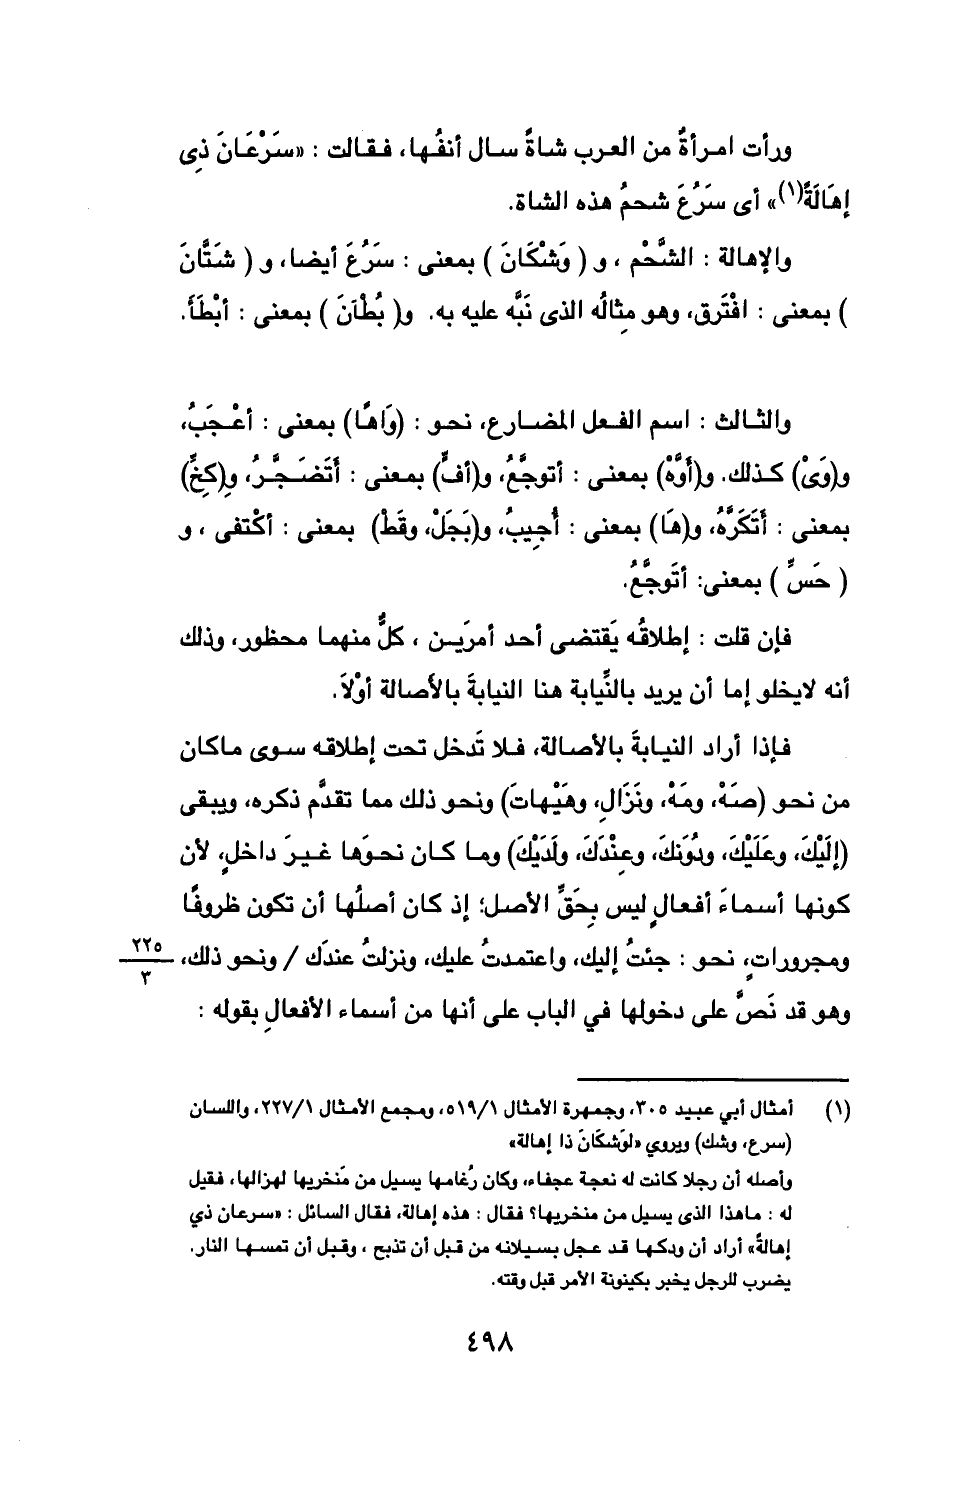 ورأت امرأةٌ من العرب شاةً سال أنفُها، فقالت : «سَرْعَانَ ذِى
إهَالَةً(١)» أى سَرُعَ شحمُ هذه الشاة.
والإهالة : الشَّحْم ، و ( وَشْكَانَ ) بمعنى : سَرُعَ أيضا، و ( شَتَّانَ
) بمعنى : افْتَرق، وهو مثالُه الذى نَبَّه عليه به. و( بُطْآنَ ) بمعنى : أبْطَأَ.
والثالث : اسم الفعل المضارع، نحو : (وَاهًا) بمعنى : أعْجَبُ،
و(وَىْ) كذلك. و(أَوَّهْ) بمعنى : أتوجَّعُ، و(أفٍّ) بمعنى : أَتَضَجَّرُ، و(كِخٍّ)
بمعنى : أَتَكَرَّهُ، و(هَا) بمعنى : أُجِيبُ، و(بَجَلْ، وقَطْ) بمعنى : أكْتفى ، و
( حَسِّ ) بمعنى: أتَوجَّعُ.
فإن قلت : إطلاقُه يَقتضى أحد أمرَين ، كلٌّ منهما محظور، وذلك
أنه لايخلو إما أن يريد بالنِّيابة هنا النيابةَ بالأصالة أوْلاَ.
فإذا أراد النيابةَ بالأصالة، فلا تَدخل تحت إطلاقه سوى ماكان
من نحو (صَهْ، ومَهْ، ونَزَالِ، وهَيْهاتَ) ونحو ذلك مما تقدَّم ذكره، ويبقى
(إلَيْكَ، وعَلَيْكَ، ودُونَكَ، وعِنْدَكَ، ولَدَيْكَ) وما كان نحوَها غيرَ داخلٍ، لأن
كونها أسماءَ أفعالٍ ليس بِحَقِّ الأصل؛ إذ كان أصلُها أن تكون ظروفًا
ومجروراتٍ، نحو : جئتُ إليك، واعتمدتُ عليك، ونزلتُ عندَك / ونحو ذلك، ٢٢٥
٣
وهو قد نَصَّ على دخولها في الباب على أنها من أسماء الأفعالِ بقوله :
(١) أمثال أبي عبيد ٣٠٥، وجمهرة الأمثال ٥١٩/١، ومجمع الأمثال ٢٢٧/١، واللسان
(سرع، وشك) ويروي «لوَشكَانَ ذا إهالة»
وأصله أن رجلا كانت له نعجة عجفاء، وكان رُغامها يسيل من مَنخريها لهزالها، فقيل
له : ماهذا الذى يسيل من منخريها؟ فقال : هذه إهالة، فقال السائل : «سرعان ذي
إهالةً» أراد أن ودكها قد عجل بسيلانه من قبل أن تذبح ، وقبل أن تمسها النار.
يضرب للرجل يخبر بكينونة الأمر قبل وقته.
٤٩٨